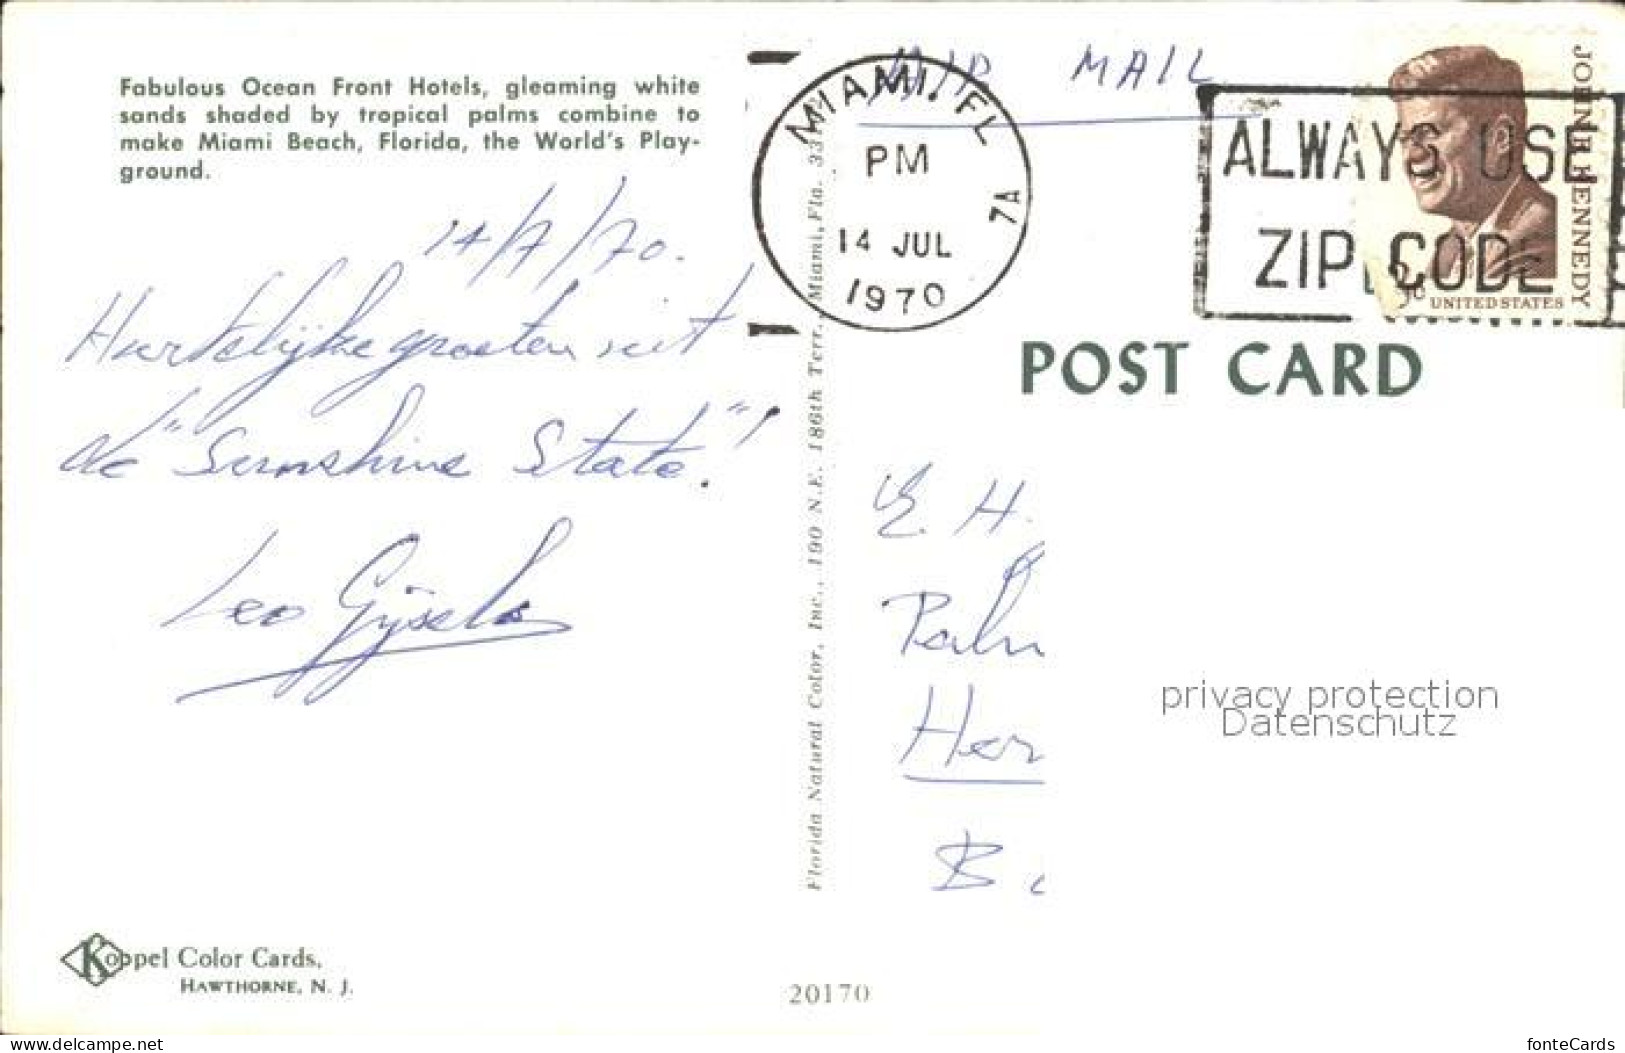 Fabulous Ocean Front Hotels, gleaming white
sands shaded by tropical palms combine to
make Miami Beach, Florida, the World's Play-
ground.
14/7/70.
Hartelijke groeten uit
de "Sunshine State"!
Leo Gijsels
Koppel Color Cards,
HAWTHORNE, N. J.
Florida Natural Color, Inc., 190 N.E. 186th Terr., Miami, Fla.
20170
AIR MAIL
MIAMI, FL
PM
14 JUL
1970
7A
ALWAYS USE
ZIP CODE
JOHN F KENNEDY
UNITED STATES
POST CARD
E. H.
Palm
Her
B
privacy protection
Datenschutz
www.delcampe.net
fonteCards